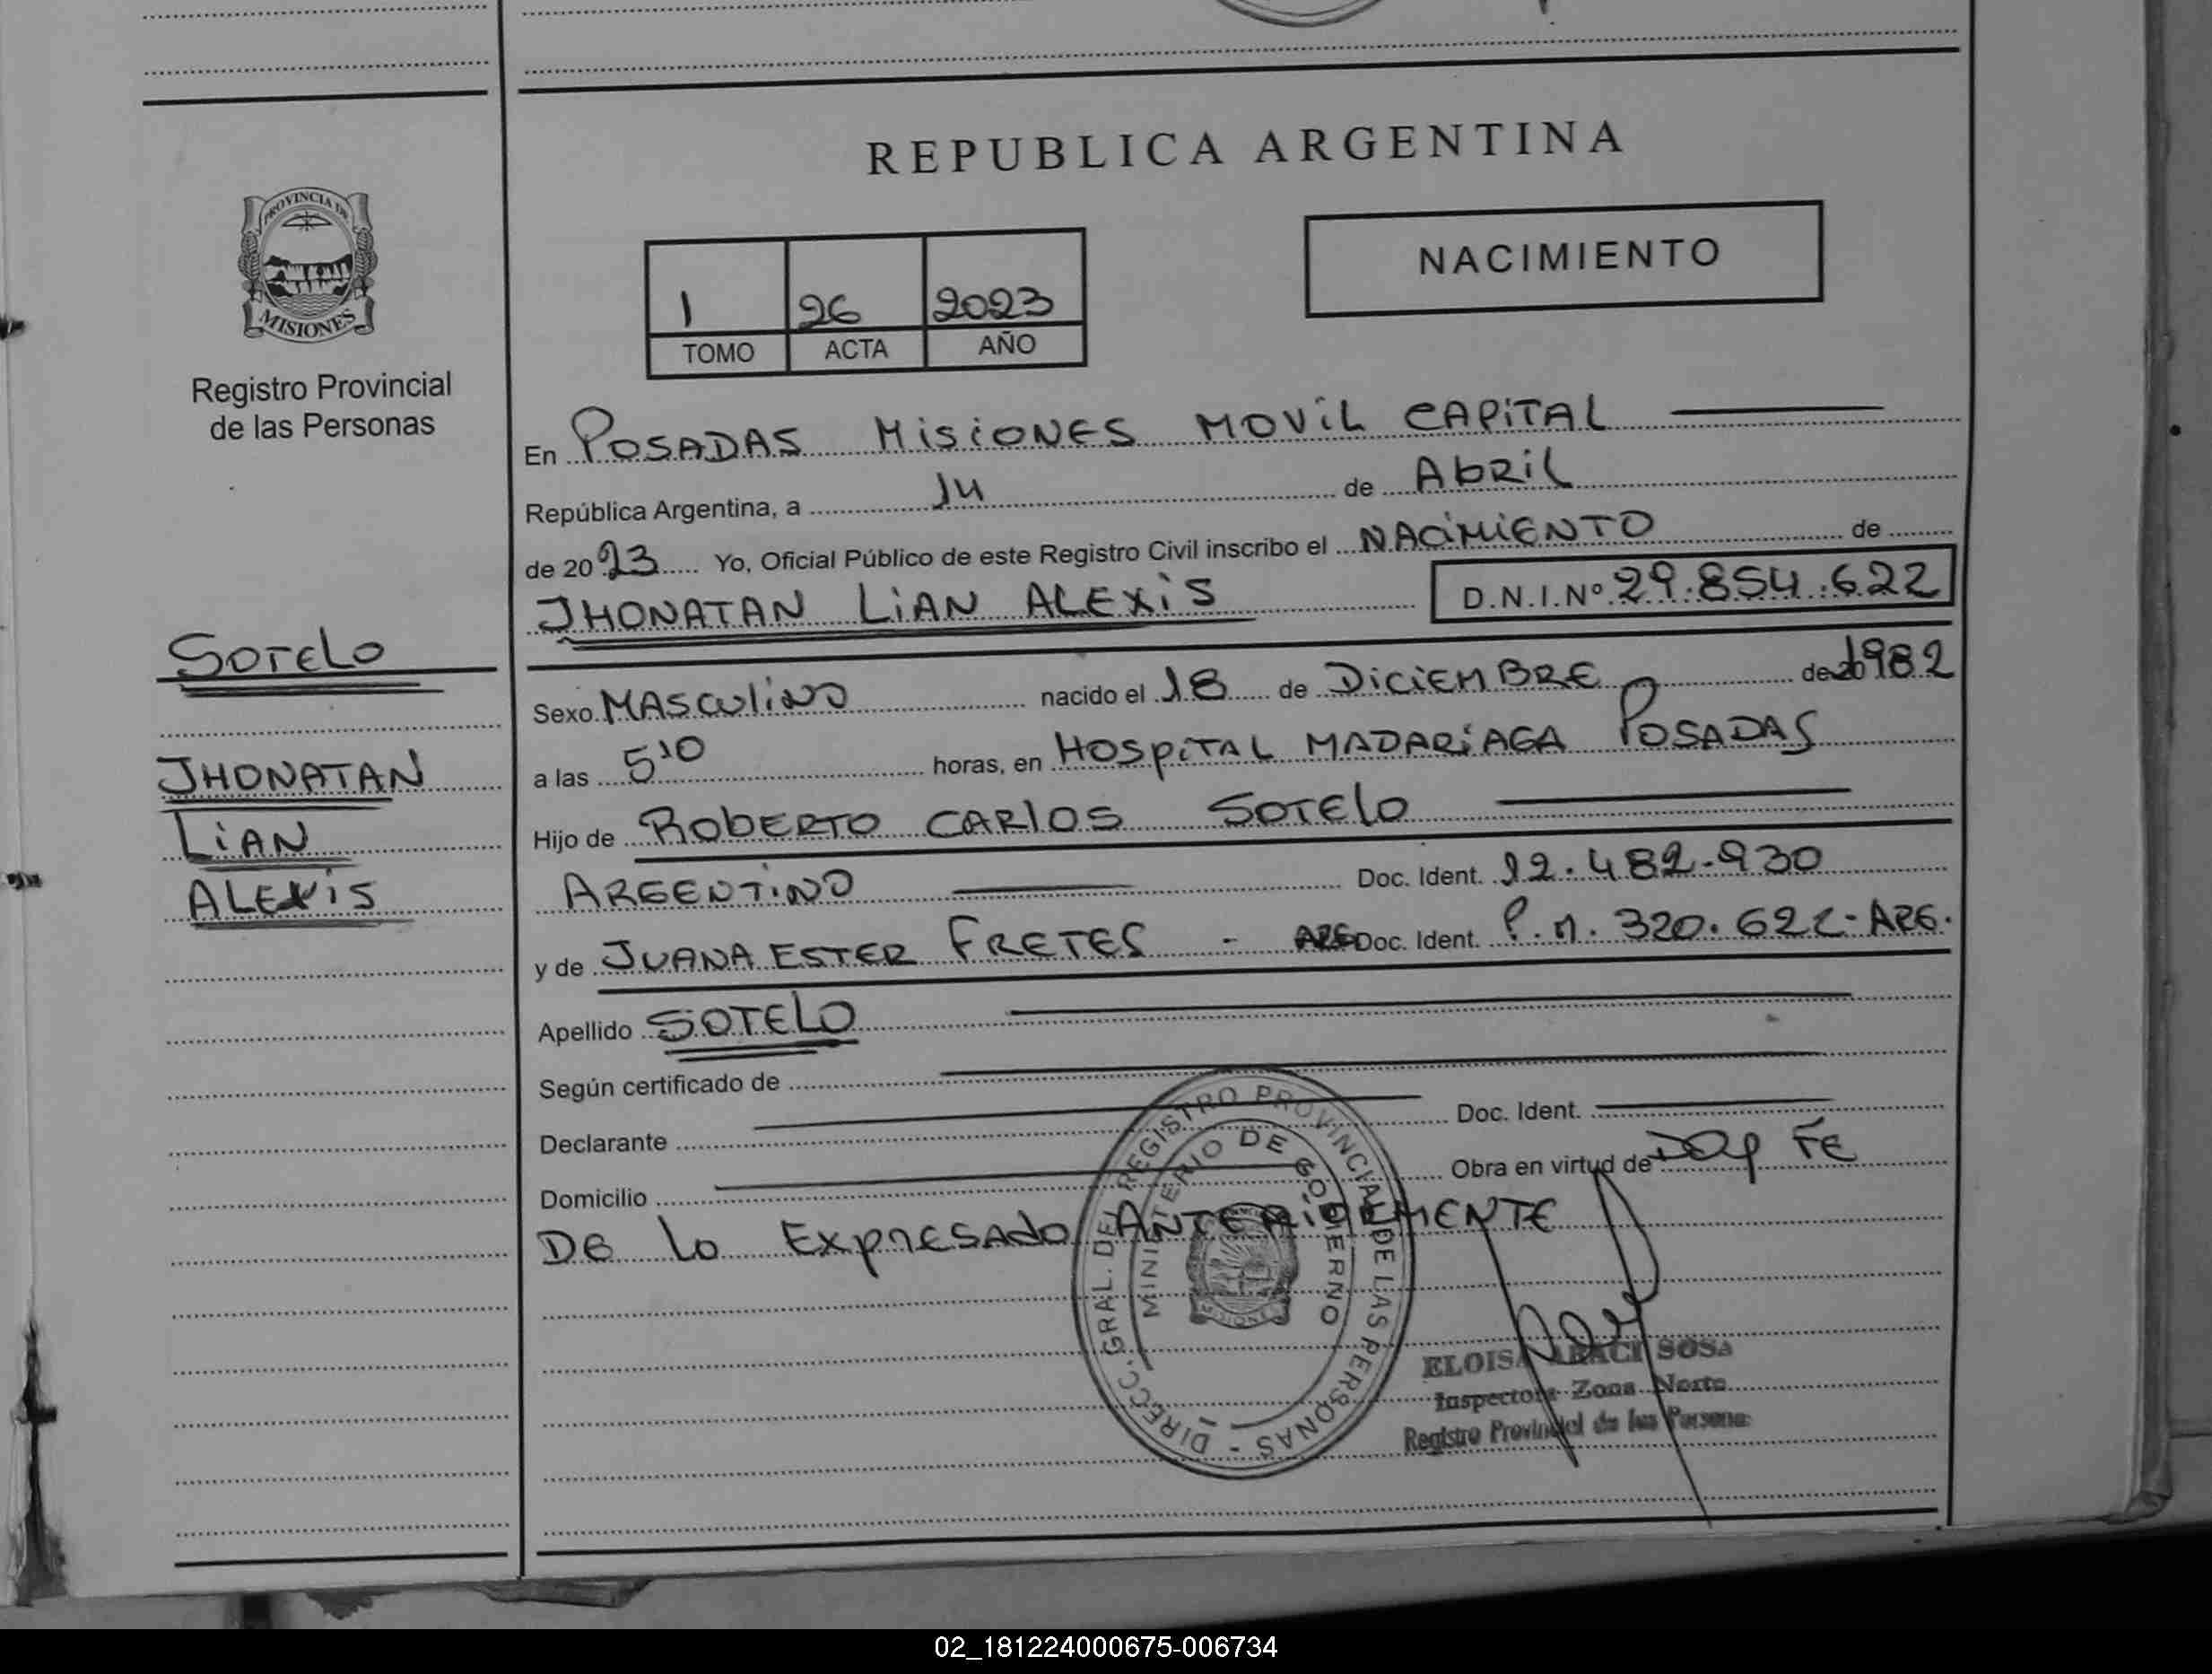 REPUBLICA ARGENTINA
PROVINCIA DE
MISIONES
Registro Provincial
de las Personas
NACIMIENTO
1 26 2023
TOMO ACTA AÑO
En POSADAS MISIONES MOVIL CAPITAL
República Argentina, a 14 de Abril
de 2023 Yo, Oficial Público de este Registro Civil inscribo el NACIMIENTO de
JHONATAN LIAN ALEXIS D.N.I.Nº 29.854.622
SOTELO
JHONATAN
LIAN
ALEXIS
Sexo MASCULINO nacido el 18 de DICIEMBRE de 1982
a las 5¹⁰ horas, en HOSPITAL MADARIAGA POSADAS
Hijo de ROBERTO CARLOS SOTELO
ARGENTINO Doc. Ident. 12.482.930
y de JUANA ESTER FRETES - ARG Doc. Ident. P.M. 320.622-ARG.
Apellido SOTELO
Según certificado de
Declarante Doc. Ident.
Domicilio Obra en virtud de Doy FE
DE Lo EXPRESADO ANTERIORMENTE
DIRECC. GRAL. DEL REGISTRO PROVINCIAL DE LAS PERSONAS -
MINISTERIO DE GOBIERNO
MISIONES
ELOISA ARACI SOSA
Inspectora Zona Norte
Registro Provincial de las Personas
02_181224000675-006734